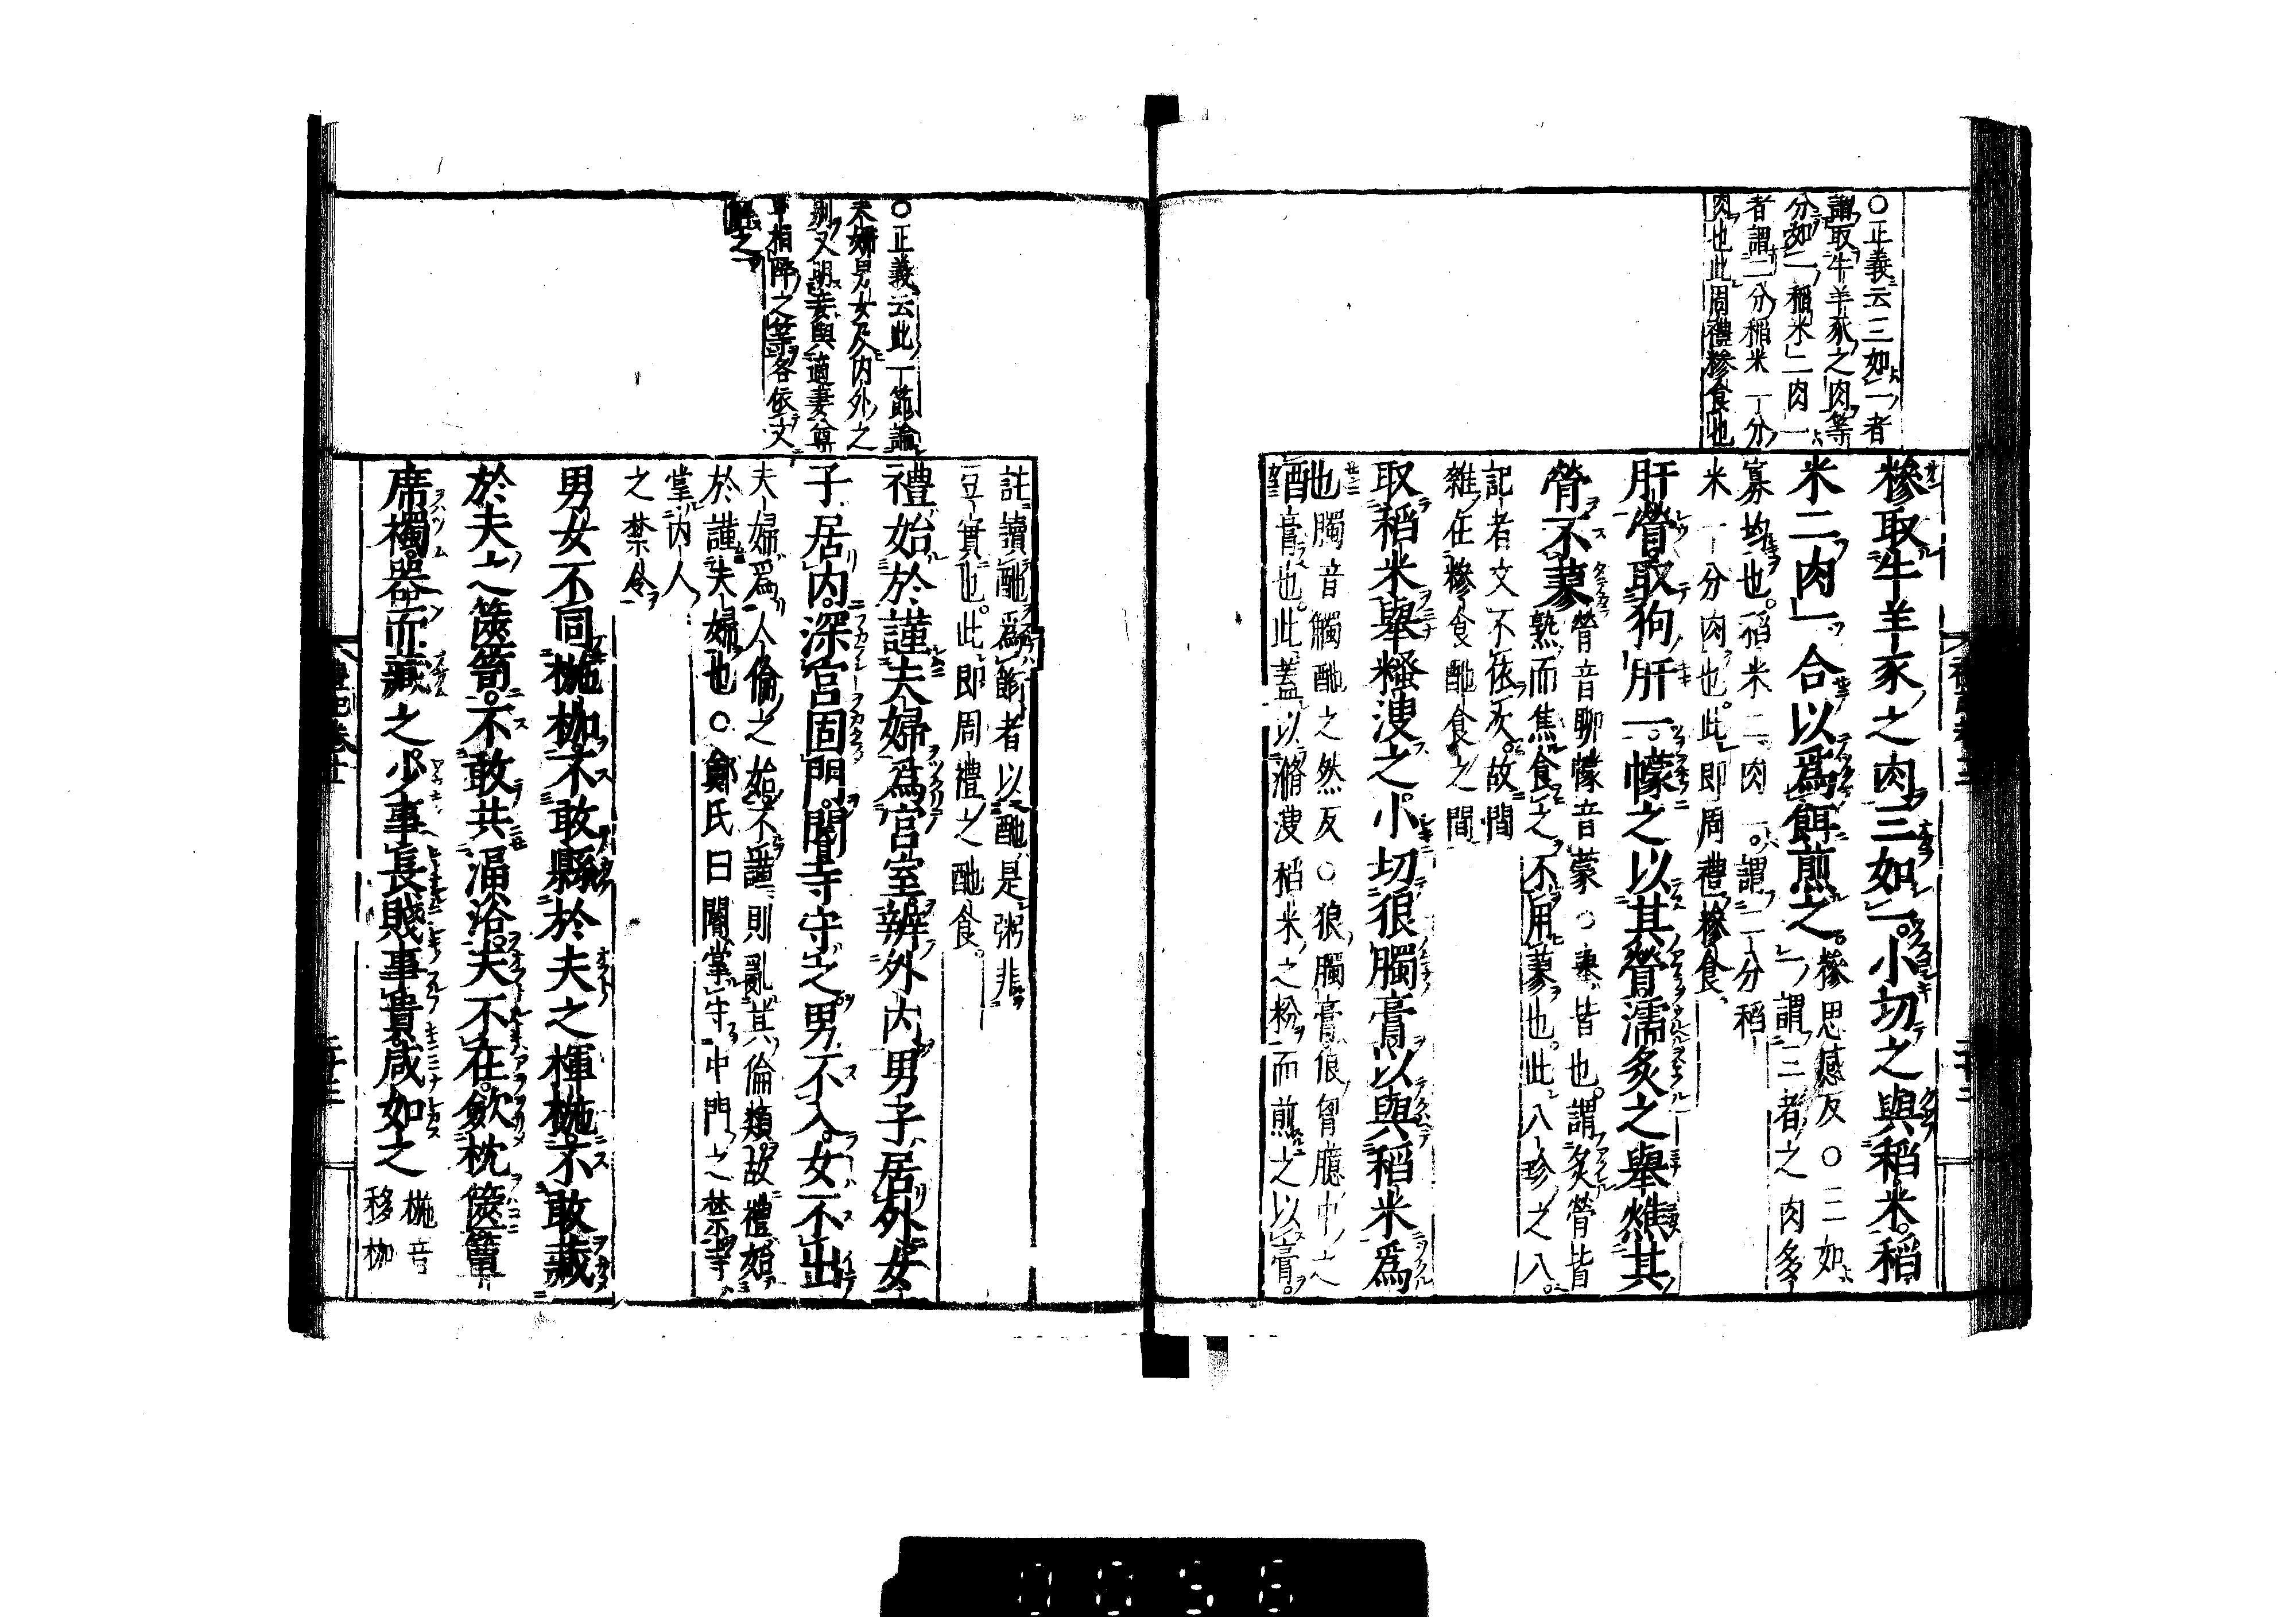 ○正義云三如一者
謂取牛羊豕之肉等
分如一稻米二肉一
者謂二分稻米一分
肉也此周禮糝食也
糝取牛羊豕之肉三如一小切之與稻米稻
米二肉一合以爲餌煎之糝思感反○三如
一謂三者之肉多
寡均也稻米二肉一謂二分稻
米一分肉也此即周禮糝食
肝膋取狗肝一幪之以其膋濡炙之舉燋其
膋不蓼膋音聊幪音蒙○舉皆也謂炙膋皆
熟而焦食之不用蓼也此八珍之八
記者文不依次故間
雜在糝食酏食之間
取稻米舉糔溲之小切狼臅膏以與稻米爲
酏臅音觸酏之然反○狼臅膏狼胷臆中之
膏也此蓋以滫溲稻米之粉而煎之以膏
註讀酏爲餰者以酏是粥非
豆實也此即周禮之酏食
○正義云此一節論
夫婦男女及內外之
別又明妾與適妻尊
卑相降之等各依文
解之
禮始於謹夫婦爲宮室辨外內男子居外女
子居內深宮固門閽寺守之男不入女不出
夫婦爲人倫之始不謹則亂其倫類故禮始
於謹夫婦也○鄭氏曰閽掌守中門之禁寺
掌內人
之禁令
男女不同椸枷不敢縣於夫之楎椸不敢藏
於夫之篋笥不敢共湢浴夫不在斂枕篋簟
席襡器而藏之少事長賤事貴咸如之椸音
移枷